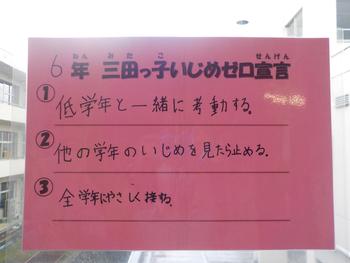 6年 三田っ子いじめゼロ宣言
ねん みたこ せんげん
① 低学年と一緒に考動する。
② 他の学年のいじめを見たら止める。
③ 全学年にやさしく接する。